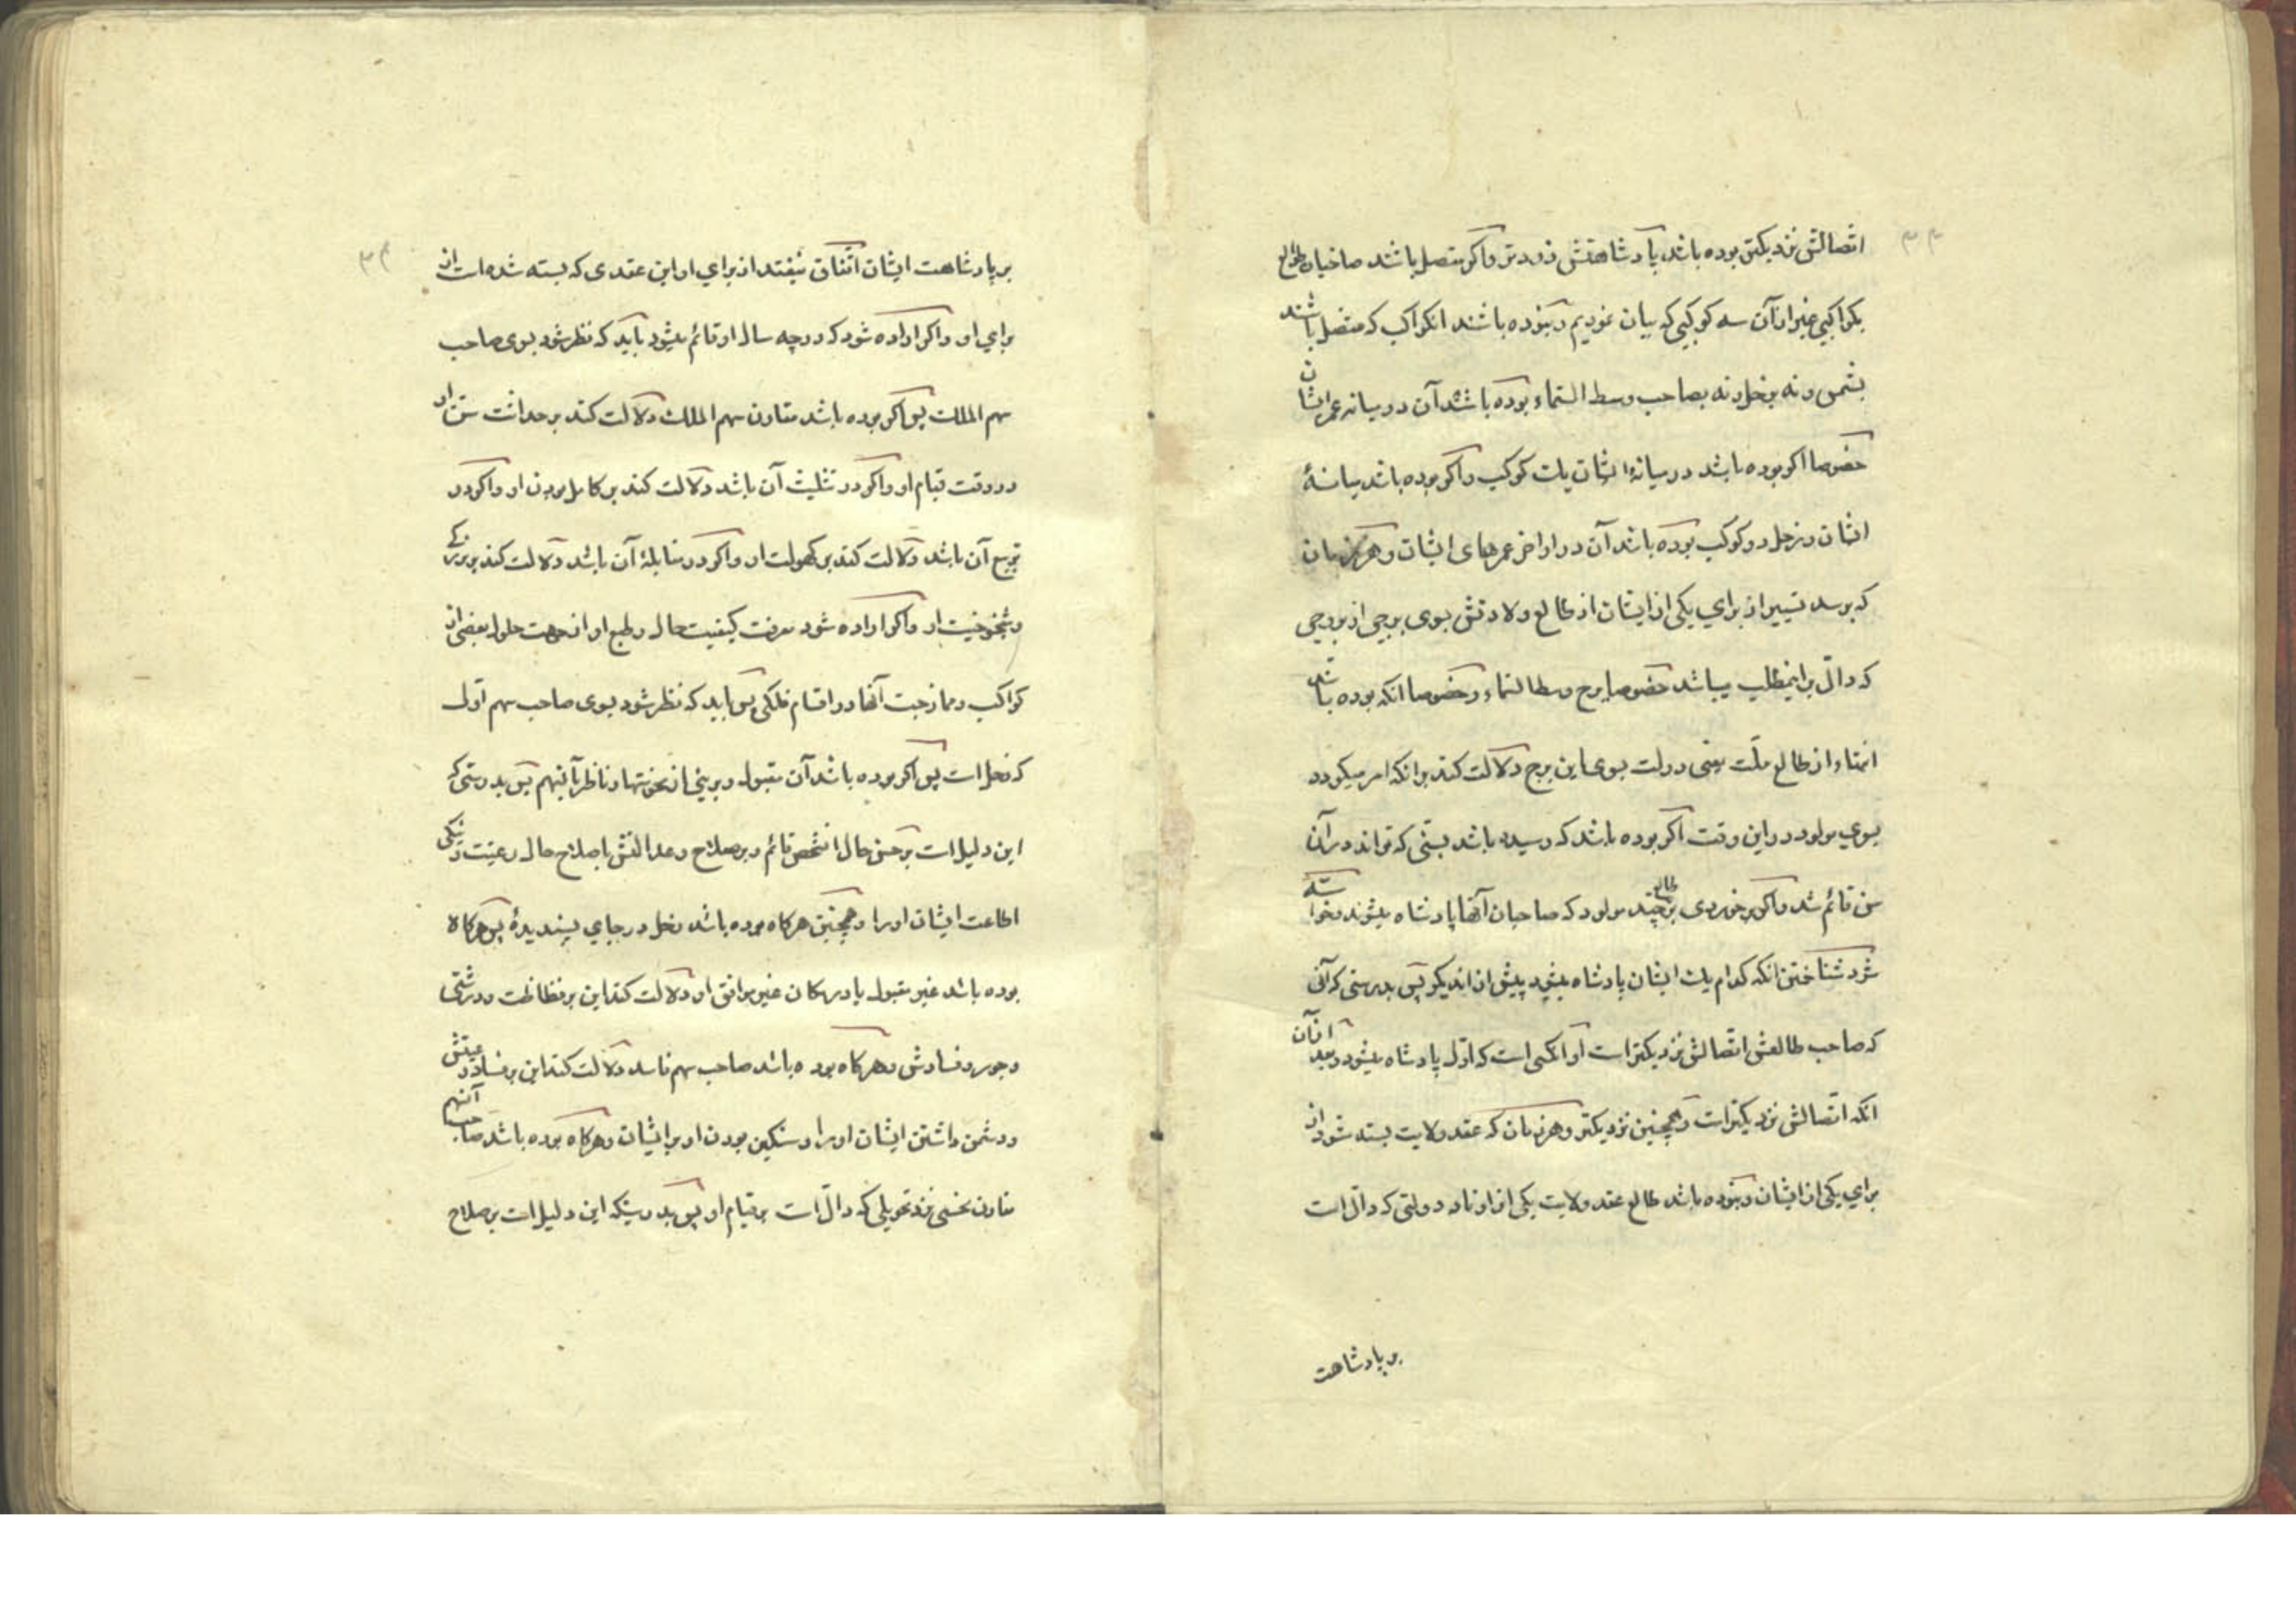 ۳۳
اتصالش نزدیکتر بوده باشد پادشاهتش زودتر و اکر متصل باشند صاحبان طالع
بکواکبی غیر از آن سه کوکبی که بیان نمودیم و نبوده باشند انکواکب که متصل باشند
بشمس و نه بزحل و نه بصاحب وسط السماء بوده باشد آن در میانه عمر ایشان
خصوصا اکر بوده باشد در میانهٔ ایشان یک کوکب و اکر بوده باشد میانهٔ
ایشان و زحل دو کوکب بوده باشد آن در اواخر عمرهای ایشان و هر زمان
که برسد تسییر از برای یکی از ایشان از طالع ولادتش بسوی برجی از بروجی
که دالّ بر اینمطلب میباشد خصوصا برج وسط السماء و خصوصا انکه بوده باشد
انتهاء از طالع ملّت یعنی دولت بسوی این برج دلالت کند بر انکه امر میکردد
بسوی مولود در این وقت اکر بوده باشد که رسیده باشد بسنّی که تواند در آن
سن قائم شد و اکر برخوردی بر طالع چند مولود که صاحبان آنها پادشاه میشوند و خواسته
شود شناختن انکه کدام یک ایشان پادشاه میشود پیش از اندیکر پس بدرستی که آنی
که صاحب طالعش اتصالش نزدیکتر است او انکسی است که اوّل پادشاه میشود و بعد از آن
انکه اتصالش نزدیکتر است و همچنین نزدیکتر و هر زمان که عقد ولایت بسته شود از
برای یکی از ایشان و نبوده باشد طالع عقد ولایت یکی از اوتاد دولتی که دالّ است
بر پادشاهت
۳۴
بر پادشاهت ایشان اتفاق نیفتد از برای او این عقدی که بسته شده است از
برای او و اکر اراده شود که در چه سال او قائم میشود باید که نظر شود بسوی صاحب
سهم الملک پس اکر بوده باشد مقارن سهم الملک دلالت کند بر حداثت سن او
در وقت قیام او و اکر در تثلیث آن باشد دلالت کند بر کامل بودن او و اکر در
تربیع آن باشد دلالت کند بر کهولت او و اکر در مقابلهٔ آن باشد دلالت کند بر بزرکی
و شیخوخیت او و اکر اراده شود معرفت کیفیت حال و طبع او از جهت حلول بعضی از
کواکب و ممازجت آنها در اقسام فلکی پس باید که نظر شود بسوی صاحب سهم اوّل
که زحل است پس اکر بوده باشد آن مقبول و بری از نحوستها و ناظر بآنسهم پس بدرستی که
این دلیل است بر حسن حال انشخص قائم و بر صلاح و عدالتش باصلاح حال رعیّت و نیکی
اطاعت ایشان او را و همچنین هر کاه بوده باشد زحل در جای پسندیدهٔ پس هر کاه
بوده باشد غیر مقبول یا در مکان غیر موافق او دلالت کند این بر فظاظت و درشتی
و جور و فسادش و هر کاه بوده باشد صاحب سهم فاسد دلالت کند این بر فساد رعیتش
و دشمن داشتن ایشان او را و سنکین بودن او بر ایشان و هر کاه بوده باشد صاحب آنسهم
مقارن نحسی نزد تحویلی که دالّ است بر قیام او پس بدرستیکه این دلیل است بر صلاح